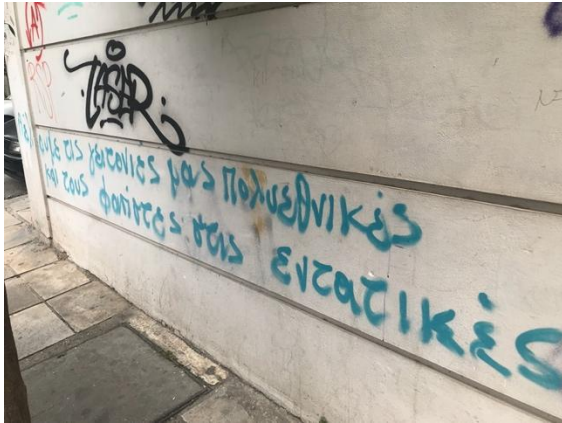 TASER
τις γειτονιές μας πολυεθνικές
και τους φασίστες στις εντατικές